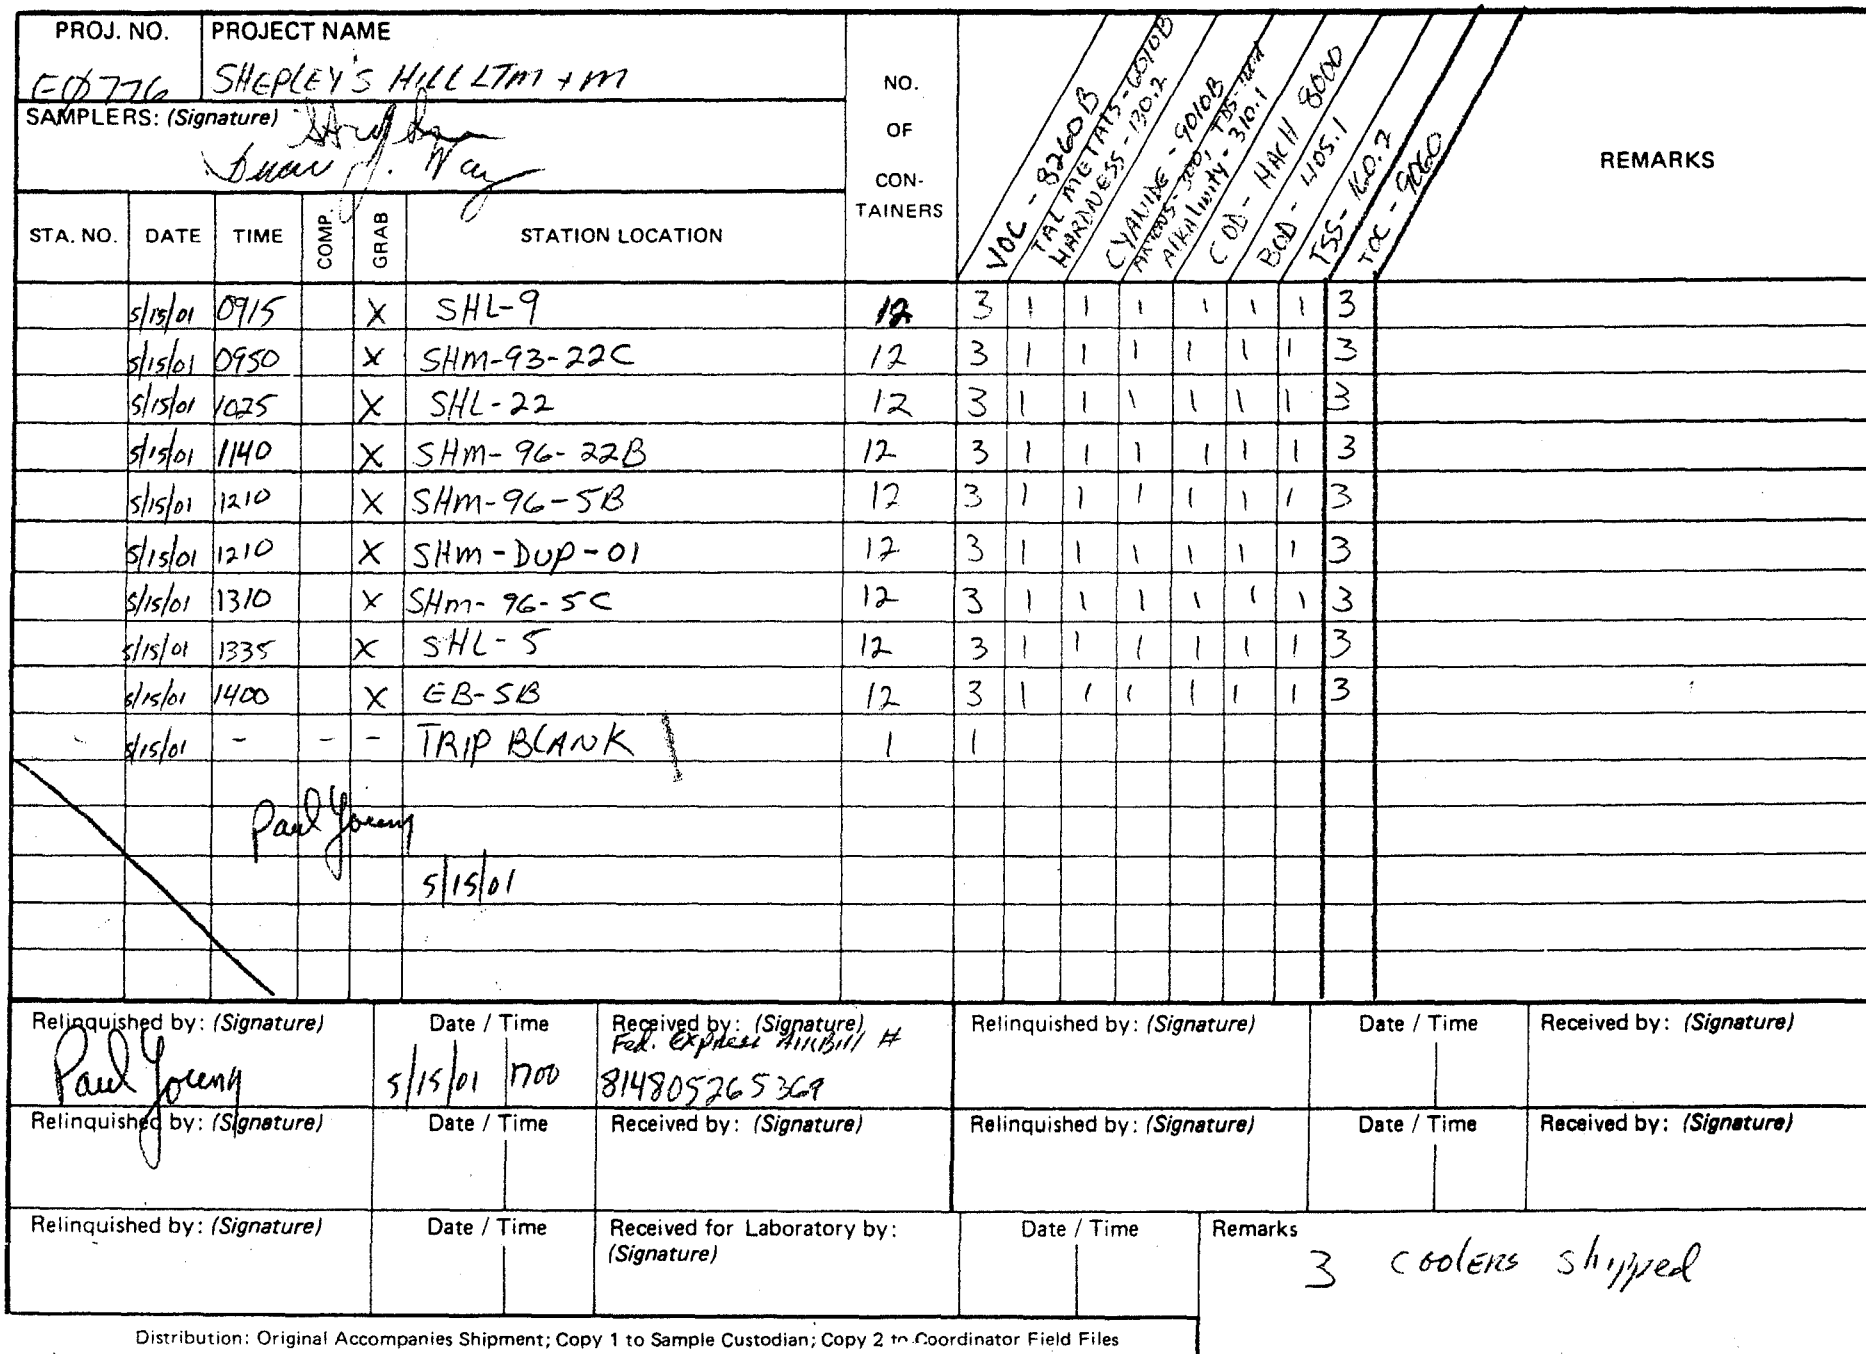 PROJ. NO. PROJECT NAME
EØ776 SHEPLEY'S HILL LTM + M
SAMPLERS: (Signature)
Duan J. Way
NO. OF CON- TAINERS
VOC - 8260B
TAL METALS - 6010B
HARDNESS - 130.2
CYANIDE - 9010B
ANIONS - 300, TDS-
Alkalinity - 310.1
COD - HACH 8000
BOD - 405.1
TSS - 160.2
TOC - 9060
REMARKS
STA. NO. DATE TIME COMP. GRAB STATION LOCATION
5/15/01 0915 X SHL-9 12 3 1 1 1 1 1 1 3
5/15/01 0950 X SHM-93-22C 12 3 1 1 1 1 1 1 3
5/15/01 1025 X SHL-22 12 3 1 1 1 1 1 1 3
5/15/01 1140 X SHM-96-22B 12 3 1 1 1 1 1 1 3
5/15/01 1210 X SHM-96-5B 12 3 1 1 1 1 1 1 3
5/15/01 1210 X SHM-DUP-01 12 3 1 1 1 1 1 1 3
5/15/01 1310 X SHM-96-5C 12 3 1 1 1 1 1 1 3
5/15/01 1335 X SHL-5 12 3 1 1 1 1 1 1 3
5/15/01 1400 X EB-5B 12 3 1 1 1 1 1 1 3
5/15/01 - - - TRIP BLANK 1 1
Paul Young
5/15/01
Relinquished by: (Signature) Date / Time Received by: (Signature) Relinquished by: (Signature) Date / Time Received by: (Signature)
Fed. Express AirBill #
Paul Young 5/15/01 1700 814805265369
Relinquished by: (Signature) Date / Time Received by: (Signature) Relinquished by: (Signature) Date / Time Received by: (Signature)
Relinquished by: (Signature) Date / Time Received for Laboratory by: (Signature) Date / Time Remarks
3 coolers shipped
Distribution: Original Accompanies Shipment; Copy 1 to Sample Custodian; Copy 2 to Coordinator Field Files